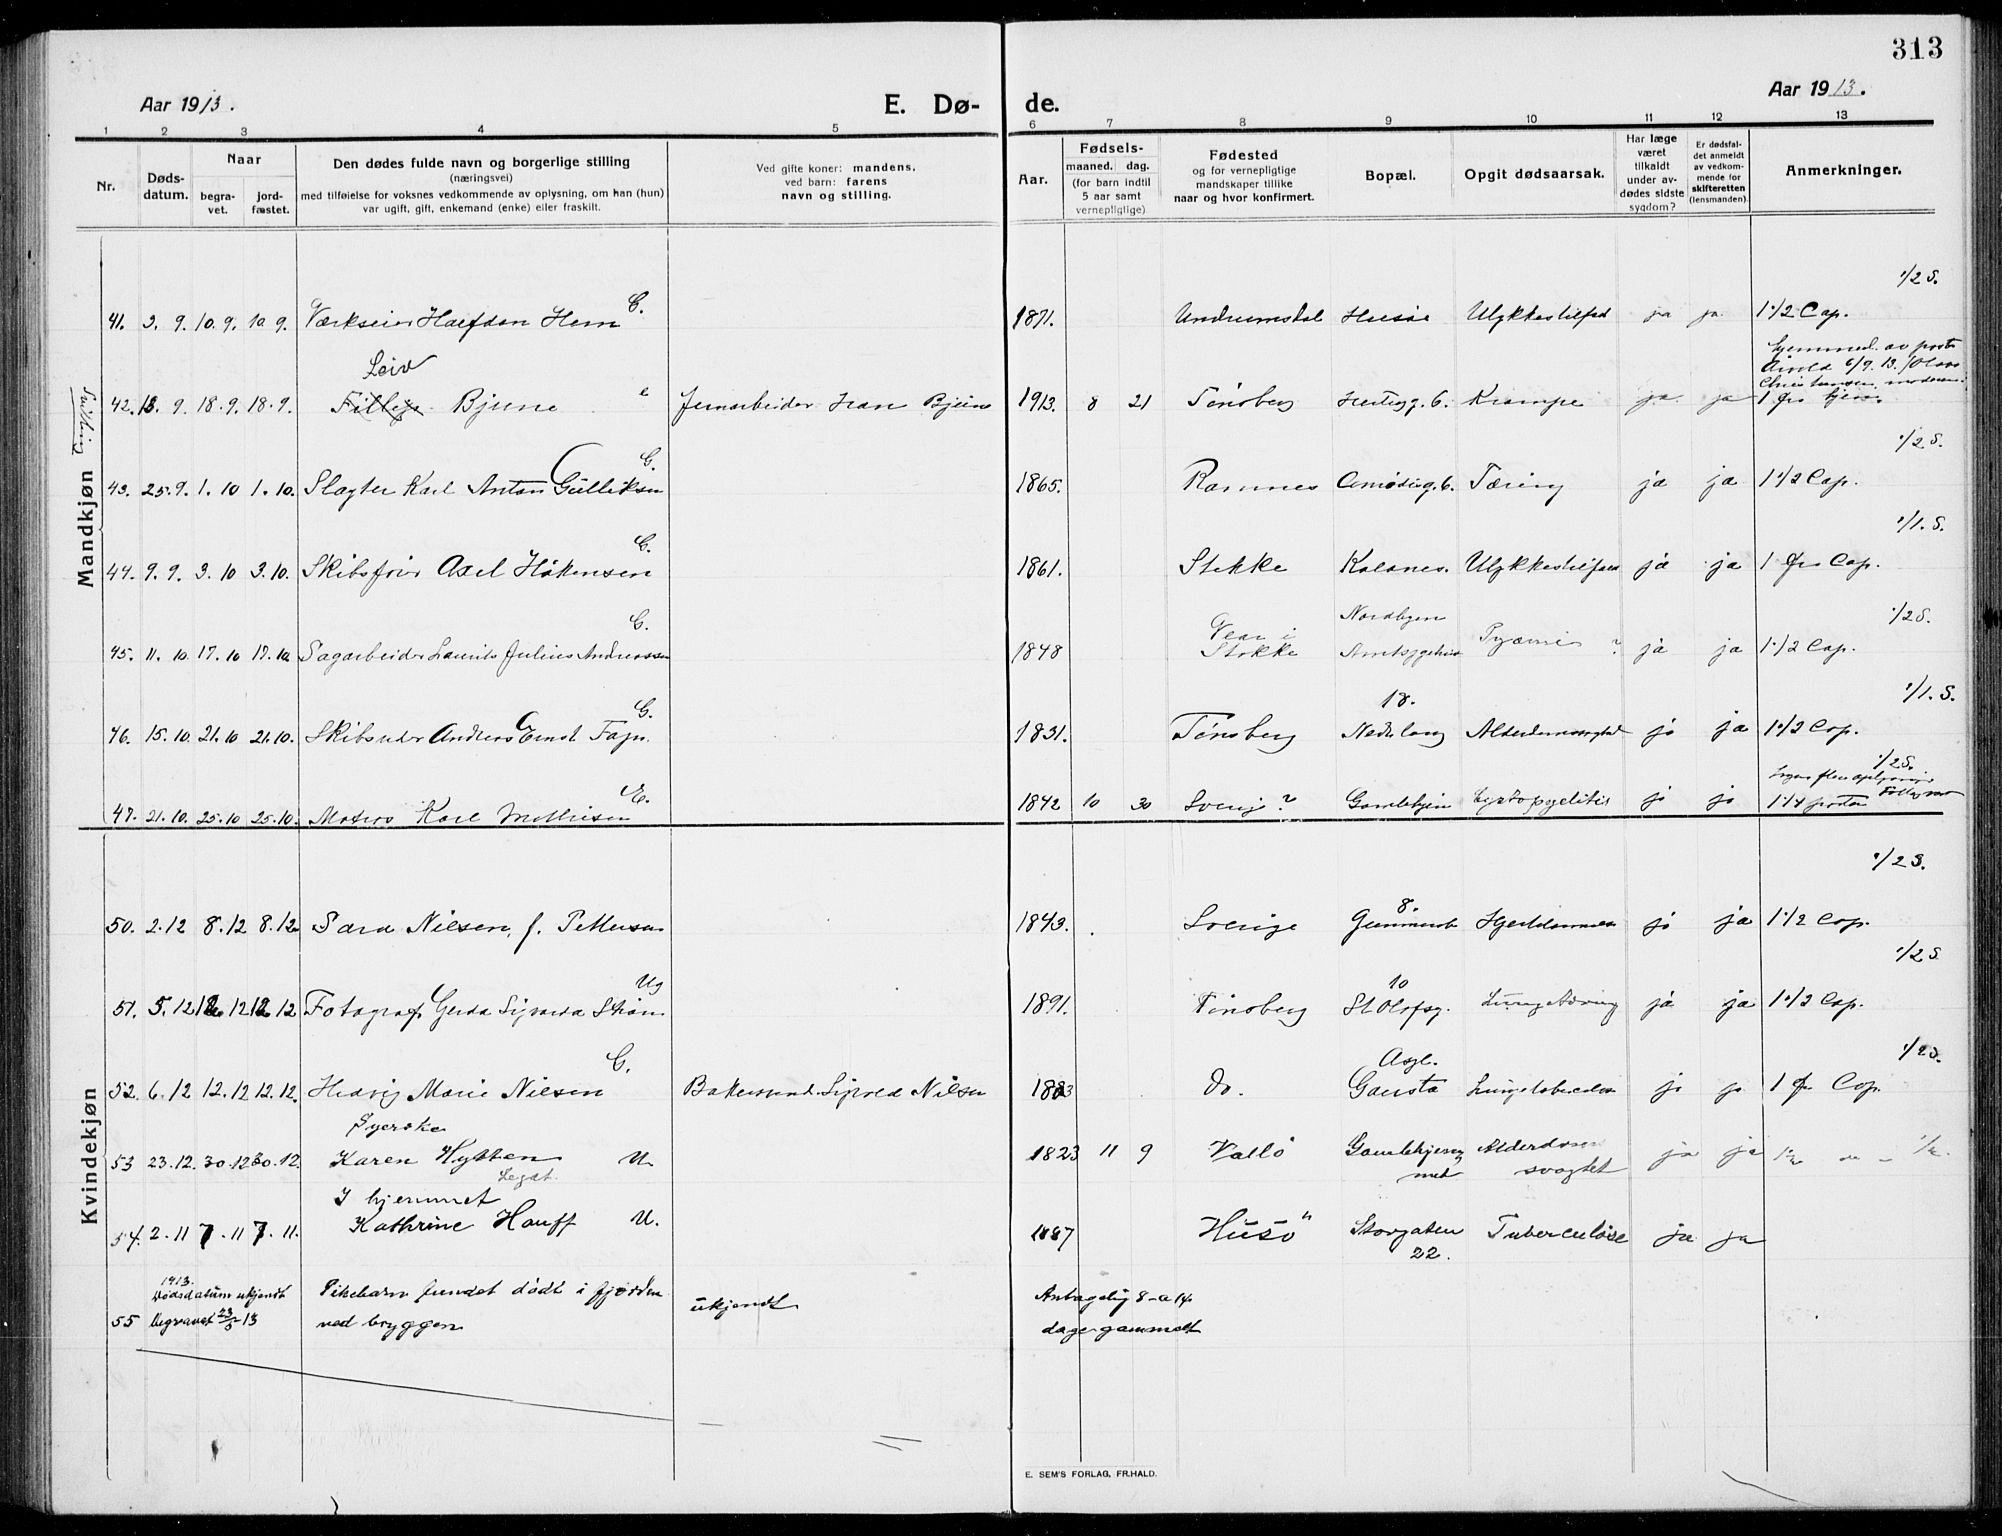 313
Aar 1913.
E. Dø-
de.
Aar 1913.
1 2 3 4 5 6 7 8 9 10 11 12 13
Nr.
Døds-
datum.
Naar
begra-
vet.
jord-
fæstet.
Den dødes fulde navn og borgerlige stilling
(næringsvei)
med tilføielse for voksnes vedkommende av oplysning, om han (hun)
var ugift, gift, enkemand (enke) eller fraskilt.
Ved gifte koner: mandens,
ved barn: farens
navn og stilling.
Aar.
Fødsels-
maaned. dag.
(for barn indtil
5 aar samt
vernepligtige)
Fødested
og for vernepligtige
mandskaper tillike
naar og hvor konfirmert.
Bopæl.
Opgit dødsaarsak.
Har læge
været
tilkaldt
under av-
dødes sidste
sygdom?
Er dødsfal-
det anmeldt
av vedkom-
mende for
skifteretten
(lensmanden).
Anmerkninger.
Mandkjøn
1/2 S.
G.
41. 3. 9. 10. 9. 10. 9. Værkseier Halfdan Hem 1871. Undrumsdal Husøe Ulykkestilfæld ja ja 1 1/2 Cap.
Leiv
42. 13. 9. 18. 9. 18. 9. Fillip Bjune Jernarbeider 1913. 8 21 Tønsberg Krampe ja ja
1/2 S.
G.
43. 25. 9. 1. 10 1. 10. Slagter Karl Anton Gulliksen 1865. Ramnes Tæring ja ja 1 1/2 Cap.
1/1. S.
G.
44. 9. 9. 3. 10 3. 10. Skibsfører Axel Håkensen 1861. Stokke Kaldnes. Ulykkestilfæld ja ja 1 Cap.
1/2 S.
G. Nordbyen
Vear i
45. 11. 10. 17. 10 17. 10. Sagarbeider Laurits Julius Andreassen 1848 Stokke Amtssygehus Pyæmi ? ja ja 1 1/2 Cap.
1/1. S.
G. 18.
46. 15. 10. 21. 10 21. 10. Skibsreder Anders Ernst Fagn. 1831. Tønsberg Nedre lang Alderdomssvaghed ja ja 1 1/2 Cap.
1/2 S.
E.
47. 21. 10. 25. 10 25. 10. Matros Karl Mathisen 1842 10 30 Sverige? Gamlehjem Cystopyelitis ja ja
Kvindekjøn
1/2 S.
8.
50. 2. 12 8. 12 8. 12 Sara Nilsen, f. Pettersen 1843. Sverige ja ja 1 1/2 Cap.
1/2 S.
Ug 10
51. 5. 12 12. 12 12. 12 Fotograf Gerda Sigrida 1891. Tønsberg St Olofsg. Lungetæring ja ja 1 1/2 Cap.
1/2 S.
G. Asyl.
52. 6. 12 12. 12 12. 12. Hedvig Marie Nilsen Bakersvend Sigvald Nilsen 1883 Do. Gausta Lungetuberculose ja ja 1 Cap.
Syerske
53 23. 12. 30. 12 30. 12. Karen Hytten U. 1823 11 9 Vallö Gamlehjem Alderdoms ja ja
Legat. svagtet
I hjemmet
54. 2. 11 7. 11 7. 11. Kathrine Hauff U. 1887 Husö Storgaten Tuberculöse ja ja
22.
1913.
Dødsdatum ukjendt Pikebarn fundet dödt i fjorden ukjendt Antagelig 8 a 14
55 Begravet 23/5 13 ved bryggen dage gammelt
E. SEM'S FORLAG, FR.HALD.